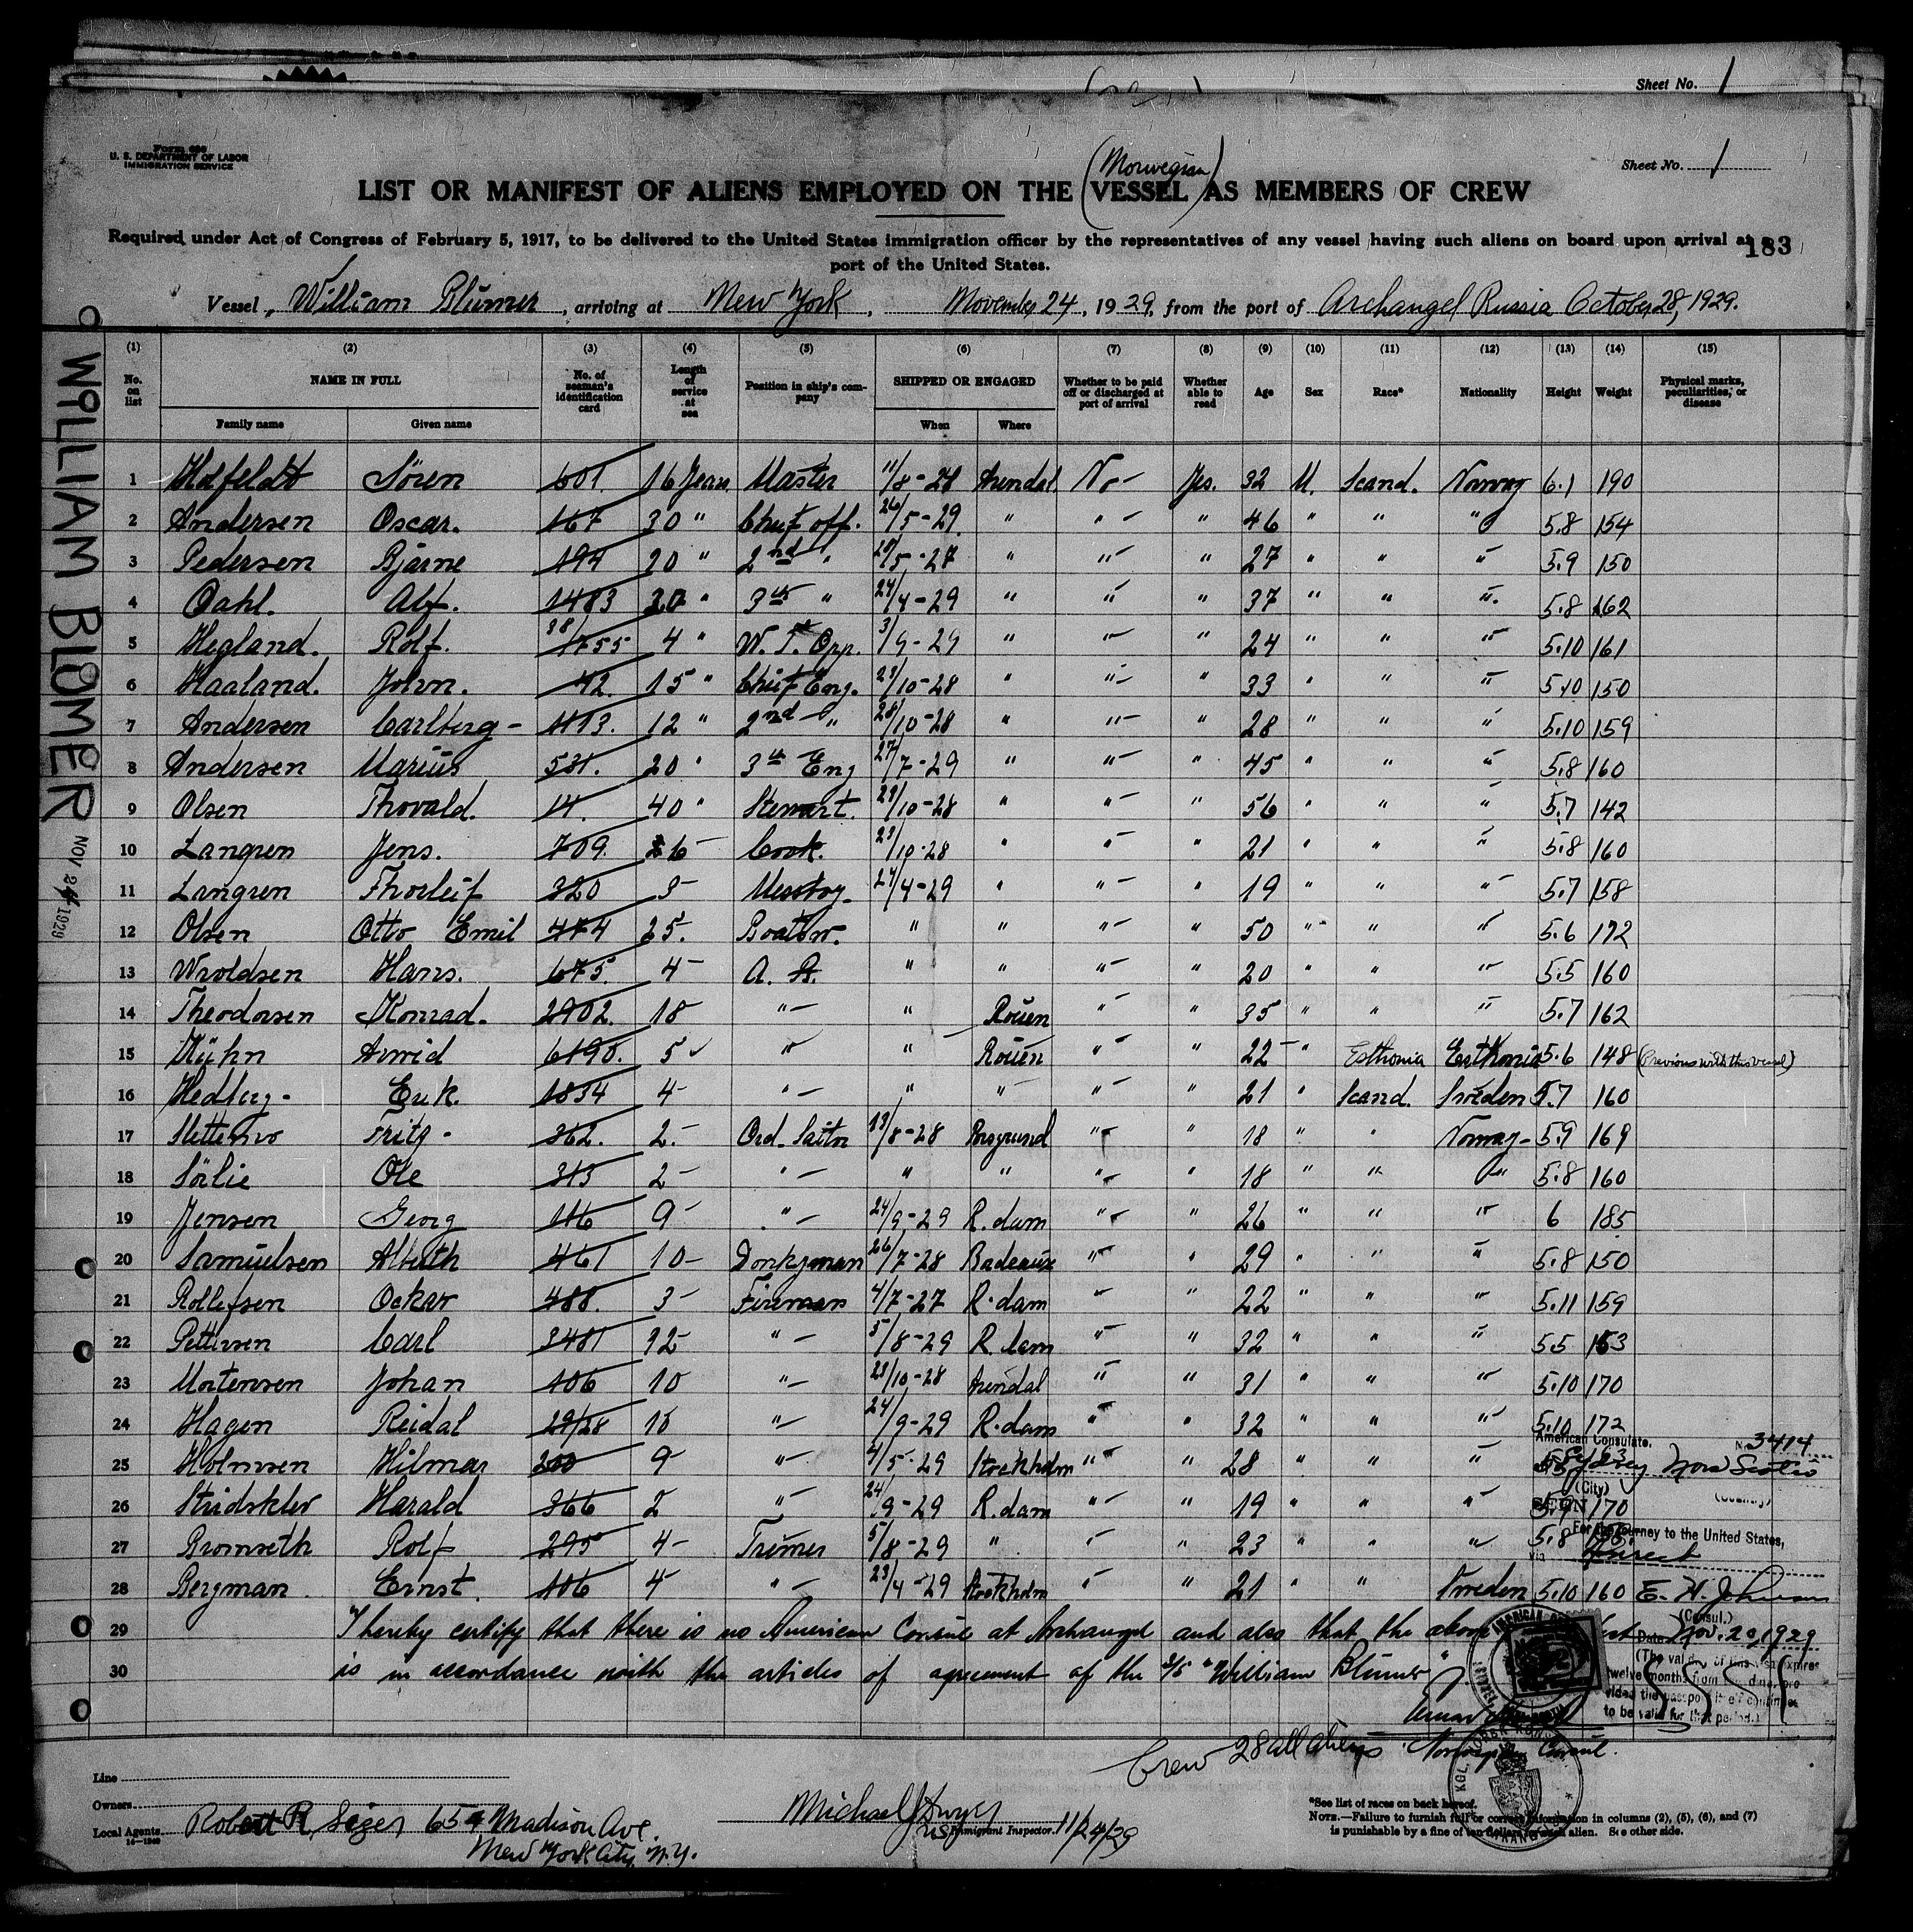 Sheet No. 1
Form 680
U. S. DEPARTMENT OF LABOR
IMMIGRATION SERVICE
Sheet No. 1
(Norwegian)
LIST OR MANIFEST OF ALIENS EMPLOYED ON THE VESSEL AS MEMBERS OF CREW
Required under Act of Congress of February 5, 1917, to be delivered to the United States immigration officer by the representatives of any vessel having such aliens on board upon arrival at a
183
port of the United States.
Vessel, William Blumer, arriving at New York, November 24, 1929, from the port of Archangel Russia October 28, 1929.
WILLIAM BLUMER NOV 24 1929
(1) (2) (3) (4) (5) (6) (7) (8) (9) (10) (11) (12) (13) (14) (15)
No. on list NAME IN FULL No. of seaman's identification card Length of service at sea Position in ship's company SHIPPED OR ENGAGED Whether to be paid off or discharged at port of arrival Whether able to read Age Sex Race* Nationality Height Weight Physical marks, peculiarities, or disease
Family name Given name When Where
1 Sören 601. 16 Years Master 11/8-28 Arendal No - Yes. 32 M. Scand. Norway 6.1 190
2 Andersen Oscar. 167 30 " Chief off. 26/5-29. " " - " 46 " " " 5.8 154
3 Pedersen Bjarne 194 20 " 2nd " 29/5-27 " " - " 27 " " " 5.9 150
4 Dahl. Alf. 1483 20 " 3th " 24/4-29 " " " 37 " " " 5.8 162
5 Hegland. Rolf. 38/1755 4 " W. T. Opp. 3/9-29 " " - " 24 " " " 5.10 161
6 Haaland. John. 42. 15 " Chief Eng. 23/10-28 " " - " 33 " " " 5.10 150
7 Andersen Carlberg - 1193. 12 " 2nd " 28/10-28 " " - " 28 " " " 5.10 159
8 Andersen Marius 531. 20 " 3th Eng 27/7-29 " " - " 45 " " " 5.8 160
9 Olsen Thovald. 14. 40 " Stewart. 23/10-28 " " - " 56 " " " 5.7 142
10 Langren Jens. 709. 6 - Cook. 23/10-28 " " - " 21 " " " 5.8 160
11 Langren Thorleif 320 3 - Messboy. 24/4-29 " " - " 19 " " " 5.7 158
12 Olsen Otto Emil 474 25. Boatsw. " " " - " 50 " " " 5.6 172
13 Wroldsen Hans. 675. 4 - A. B. " " " - " 20 " " " 5.5 160
14 Theodorsen Konrad. 2902. 18 " - " Rouen " - " 35 " " " 5.7 162
15 Kühn Arvid 6190. 5 " " Rouen " - " 22 - " Esthonia Esthonia 5.6 148 (Previous with this vessel)
16 Hedberg - Erik. 1834 4 - " - " " " - " 21 " Scand. Sweden 5.7 160
17 Fritz - 362. 2. - Ord. Sailor 13/8-28 Porsgrund " - " 18 " " Norway - 5.9 169
18 Sörlie Ole 313 2 - " - " " " - " 18 " " " 5.8 160
19 Jensen Georg 116 9 - " - 24/9-29 R.dam " - " 26 " " " 6 185
20 Samuelsen Alberth 461 10 - Donkyman 26/7-28 Badeaux " - " 29 " " " 5.8 150
21 Rollefsen Oskar 488. 3 - Fireman 4/7-27 R.dam " - " 22 " " " 5.11 159
22 Pettersen Carl 3481 12 - " - 5/8-29 R.dam " - " 32 " " " 5.5 153
23 Mortensen Johan 106 10 " - 23/10-28 Arendal " - " 31 " " " 5.10 170
24 Hagen Reidal 29/28 10 " - 24/9-29 R.dam " - " 32 " " " 5.10 172
25 Holmsen Hilmar 200 9 - " - 4/5-29 Stockholm " - " 28 " " "
26 Harald 366 2 " - 24/9-29 R.dam " - " 19 " " " 5.9 170
27 Bromseth Rolf 295 4 - Trimer 5/8-29 " " - " 23 " " " 5.8
28 Bergman Ernst. 106 4 " - 23/4-29 Stockholm " - " 21 " " Sweden 5.10 160
American Consulate.
No. 3414
Sydney Nova Scotia
(City) (Country)
SEEN
For the journey to the United States,
via direct
E. H. Johnson
(Consul.)
Date Nov. 20, 1929
(The validity of this visa expires
twelve months from this date, provided
the passport itself continues
to be valid for that period.)
29 I hereby certify that there is no American Consul at Archangel and also that the above list
30 is in accordance with the articles of agreement of the S/S "William Blumer"
Norwegian Consul.
Crew 28 all aliens
Line
Owners
Local Agents Robert R. Sizer 654 Madison Ave.
New York City, N.Y.
Michael J. Dwyer
US Immigrant Inspector. 11/24/29
*See list of races on back hereof.
NOTE.—Failure to furnish full or correct information in columns (2), (5), (6), and (7)
is punishable by a fine of ten dollars for each alien. See other side.